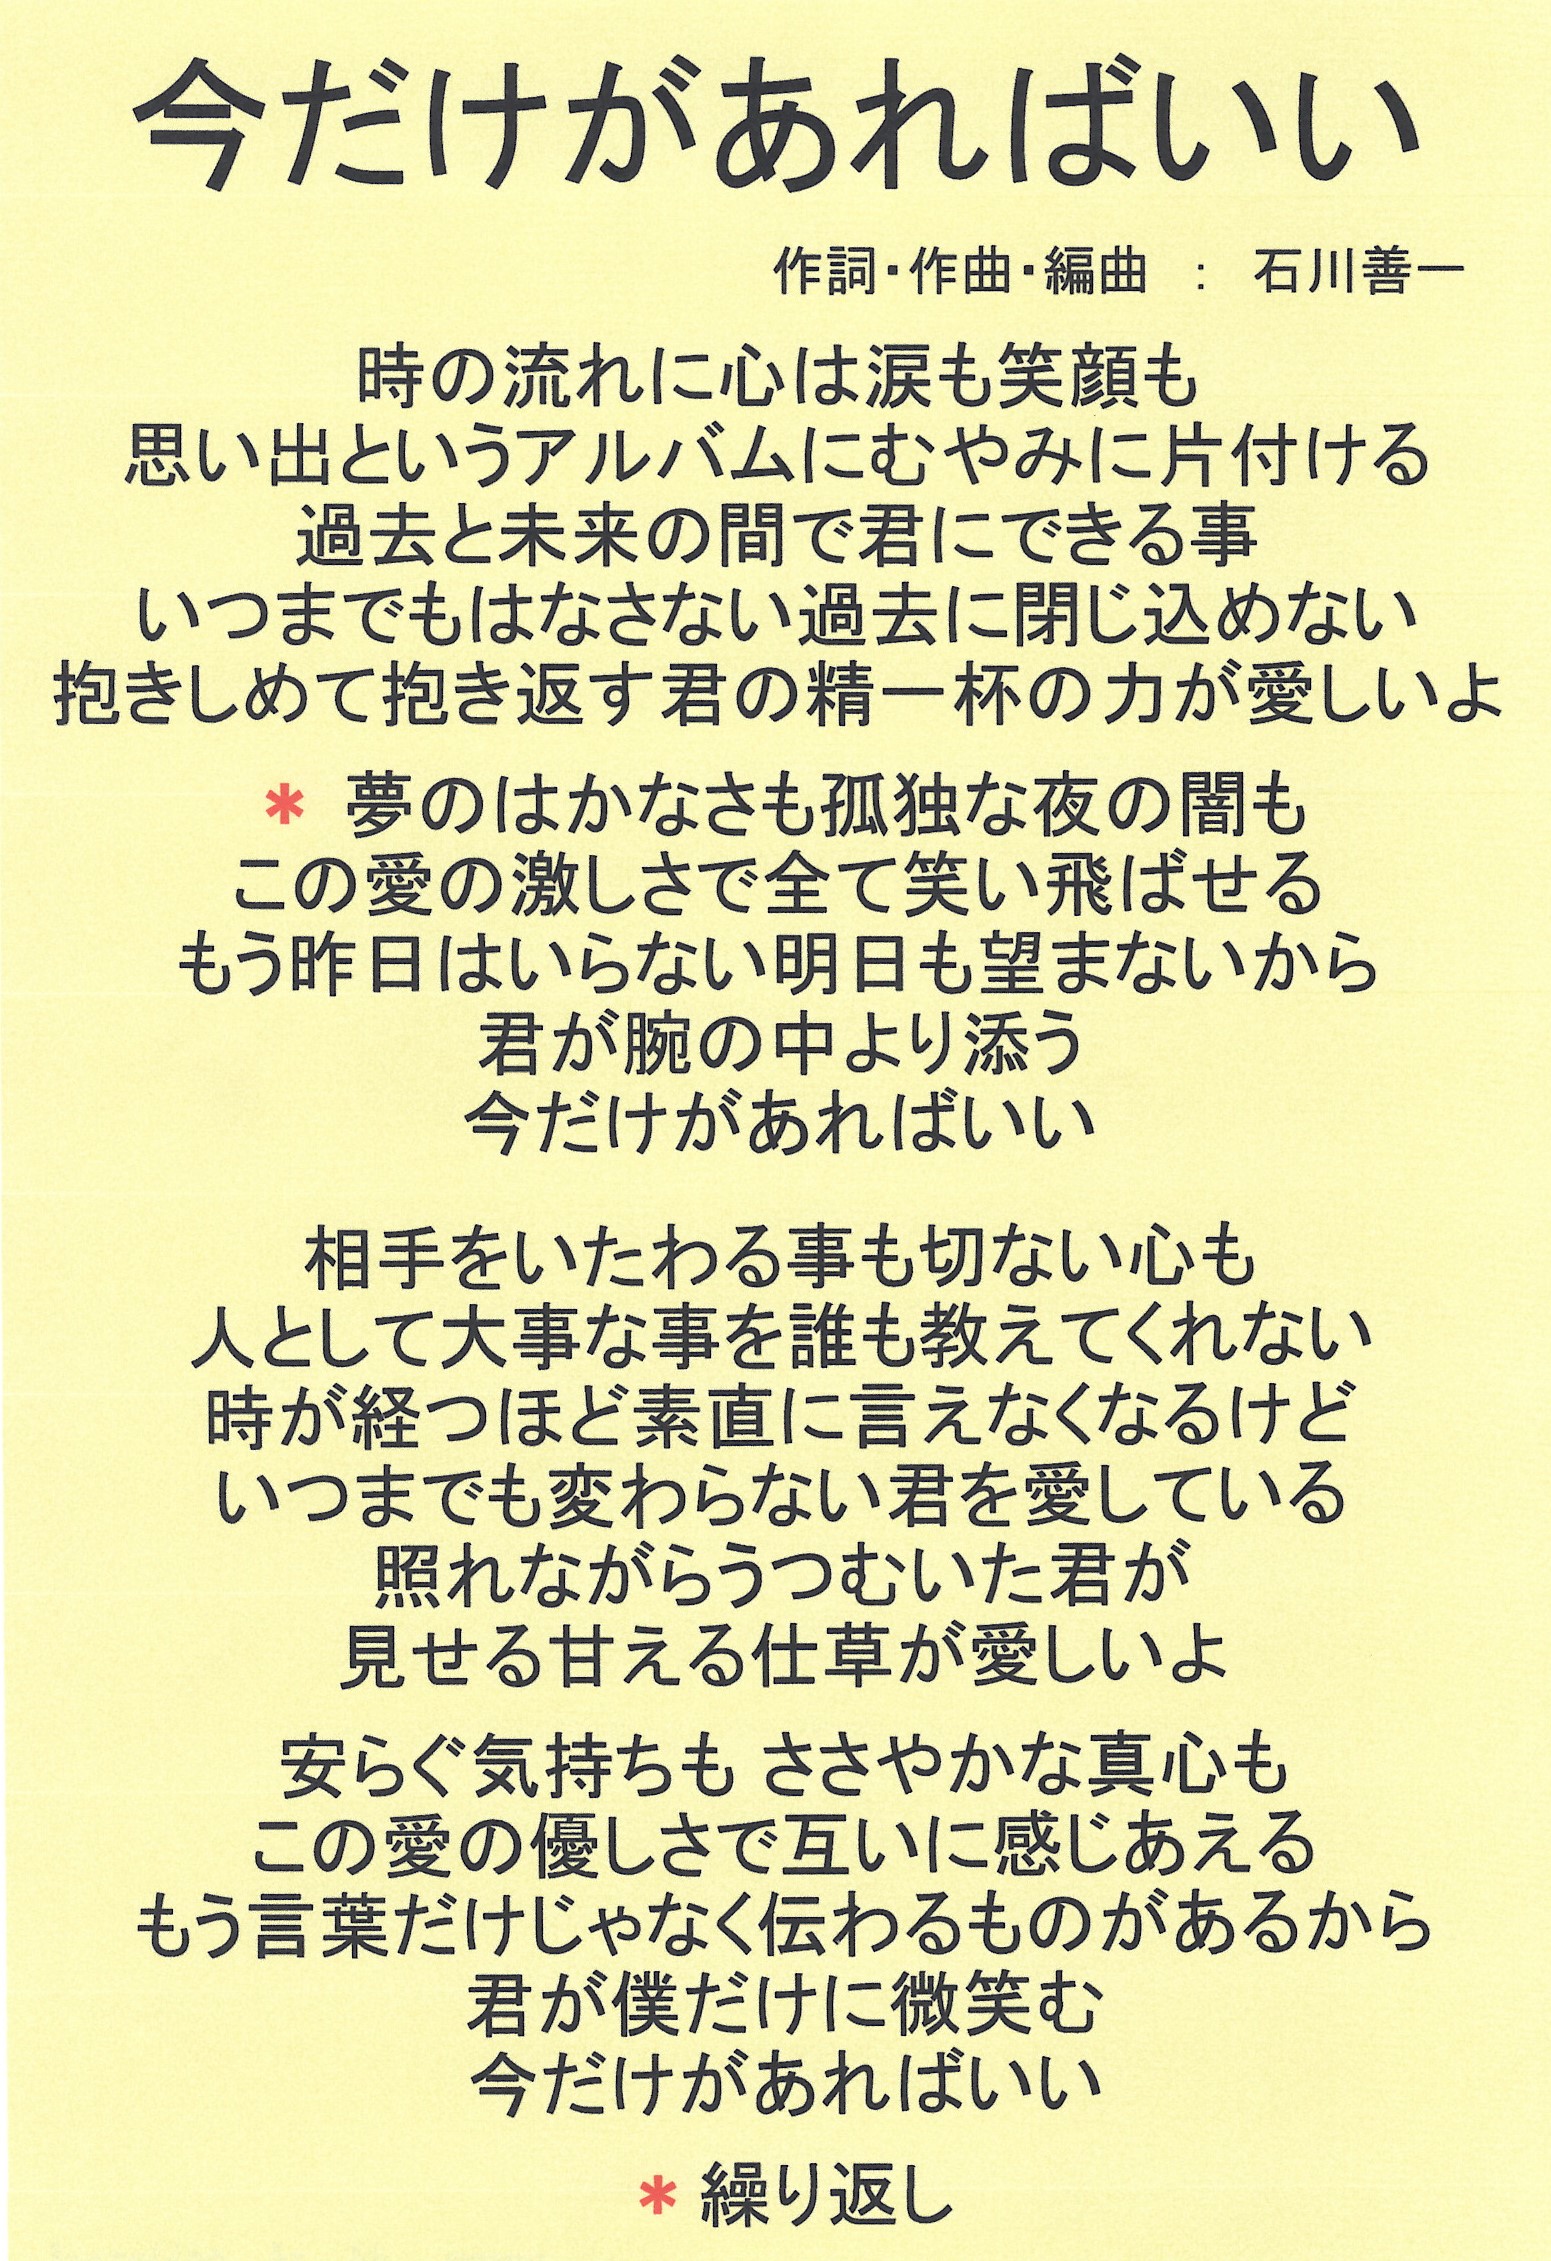 今だけがあればいい
作詞・作曲・編曲　：　石川善一
時の流れに心は涙も笑顔も
思い出というアルバムにむやみに片付ける
過去と未来の間で君にできる事
いつまでもはなさない過去に閉じ込めない
抱きしめて抱き返す君の精一杯の力が愛しいよ
* 夢のはかなさも孤独な夜の闇も
この愛の激しさで全て笑い飛ばせる
もう昨日はいらない明日も望まないから
君が腕の中より添う
今だけがあればいい
相手をいたわる事も切ない心も
人として大事な事を誰も教えてくれない
時が経つほど素直に言えなくなるけど
いつまでも変わらない君を愛している
照れながらうつむいた君が
見せる甘える仕草が愛しいよ
安らぐ気持ちも ささやかな真心も
この愛の優しさで互いに感じあえる
もう言葉だけじゃなく伝わるものがあるから
君が僕だけに微笑む
今だけがあればいい
* 繰り返し